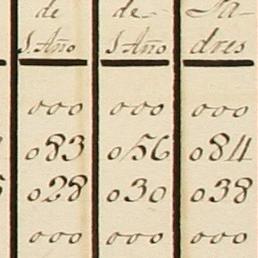 de de Pa-
S. Año S. Año dres
000 000 000
083 056 084
028 030 038
000 000 000